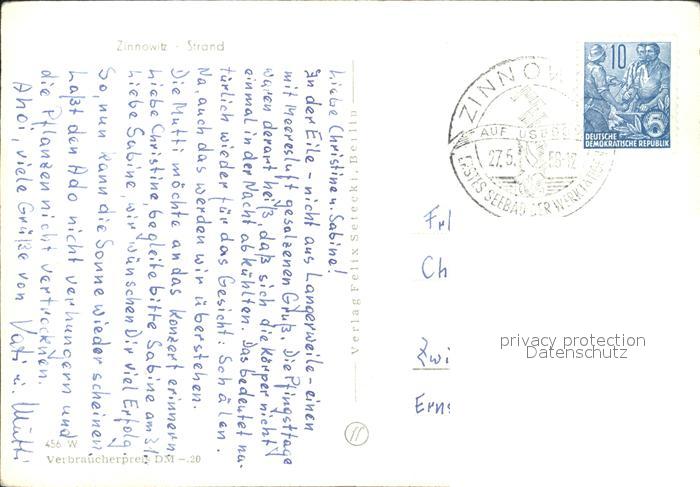 Zinnowitz - Strand
Liebe Christine u. Sabine!
In der Eile - nicht aus Langerweile - einen
mit Meeresluft gesalzenen Gruß. Die Pfingsttage
waren derart heiß, daß sich die Körper nicht
einmal in der Nacht abkühlten. Das bedeutet na-
türlich wieder für das Gesicht: Schälen.
Na, auch das werden wir überstehen.
Die Mutti möchte an das Konzert erinnern
Liebe Christine, begleite bitte Sabine am 31.
Liebe Sabine, wir wünschen Dir viel Erfolg.
So, nun kann die Sonne wieder scheinen.
Laßt den Ado nicht verhungern und
die Pflanzen nicht vertrocknen.
Ahoi, viele Grüße von Vati u. Mutti
456 W
Verbraucherpreis DM -.20
Verlag Felix Setecki, Berlin
ZINNOW
AUF USEDOM
27.5. 58-12
ERSTES SEEBAD DER WERKTÄTIGEN
10
DEUTSCHE
DEMOKRATISCHE REPUBLIK
5
Frl
Ch
Zwi
Erns
privacy protection
Datenschutz